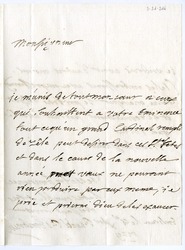 Monseigneur
je m'unis de tout mon cœur a ceux
qui souhaittent a votre Eminence
tout ce qu'un grand Cardinal rempli
de zele peut desirer dans ces Stes fetes
et dans le cours de la nouvelle
année vœux ne pouvant
rien produire par eux meme, je
prie et prierai dieu de les exaucer